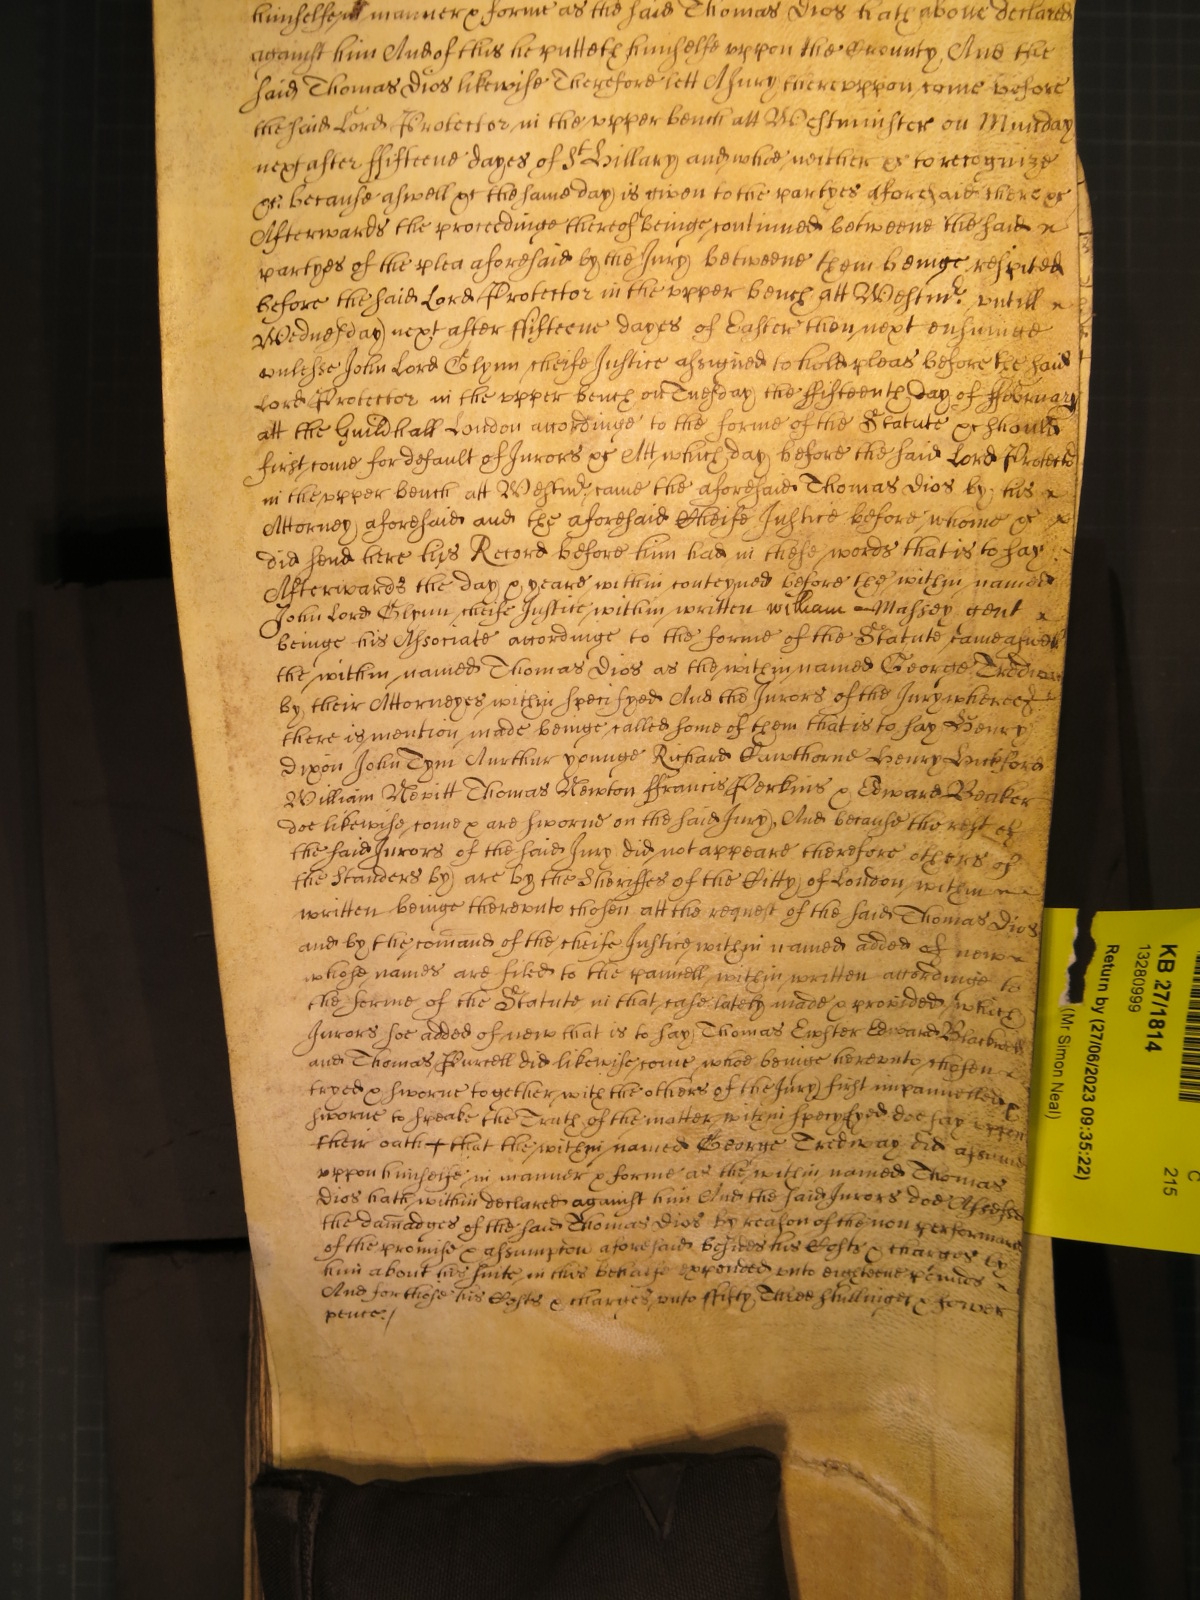 himselfe in manner & forme as the said Thomas Dios hath above declared
against him And of this he putteth himselfe uppon the Country And the
said Thomas Dios likewise Therefore lett A Jury thereuppon come before
the said Lord Protector in the upper bench att Westminster on Munday
next after ffifteene dayes of St Hillary and whoe neither &c to recognize
&c because aswell &c the same day is given to the partyes aforesaid there &c
Afterwards the proceedinge thereof beinge continued betweene the said
partyes of the plea aforesaid by the Jury betweene them beinge respited
before the said Lord Protector in the upper bench att Westmr untill
Wednesday next after ffifteene dayes of Easter then next ensuinge
unlesse John Lord Glynn cheife Justice assigned to hold pleas before the said
Lord Protector in the upper bench on Tuesday the ffifteenth day of ffebruary
att the Guildhall London accordinge to the forme of the Statute &c should
first come for default of Jurors &c Att which day before the said Lord Protector
in the upper bench att Westmr came the aforesaid Thomas Dios by his
Attorney aforesaid and the aforesaid Cheife Justice before whome &c
did send here his Record before him had in these words that is to say
Afterwards the day & yeare within conteyned before the within named
John Lord Glynn cheife Justice within written William Massey gent
beinge his Associate accordinge to the forme of the Statute came aswell
the within named Thomas Dios as the within named George Tredway
by their Attorneyes within specifyed And the Jurors of the Jury whereof
there is mention made beinge called some of them that is to say Henry
Dixon John Tym Aurthur younge Richard Cawthorne Henry Hickford
William Nevitt Thomas Newton ffrancis Perkins & Edward Beaker
doe likewise come & are sworne on the said Jury And because the rest of
the said Jurors of the said Jury did not appeare therefore others of
the standers by are by the Sheriffes of the Citty of London within
written beinge thereunto chosen att the request of the said Thomas Dios
and by the comand of the cheife Justice within named added of new
whose names are filed to the pannell within written accordinge to
the forme of the Statute in that case lately made & provided which
Jurors soe added of new that is to say Thomas Ewster Edward Blackwell
and Thomas Purcell did likewise come whoe beinge hereunto chosen
tryed & sworne together with the others of the Jury first impannelled &
sworne to speake the Truth of the matter within specyfyed doe say uppon
their oath + that the within named George Tredway did assume
uppon himselfe in manner & forme as the within named Thomas
Dios hath within declared against him And the said Jurors doe Assesse
the damadges of the said Thomas Dios by reason of the non performance
of the promise & assumption aforesaid besides his Costs & charges by
him about his suite in this behalfe expended unto eighteene pounds
And for those his Costs & charges unto ffifty Three shillinges & fower
pence./
KB 27/1814
13280999
Return by (27/06/2023 09:35:22)
(Mr Simon Neal)
C
215